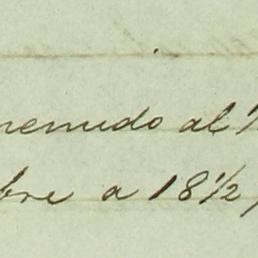 menudo al
bre a 18 1/2